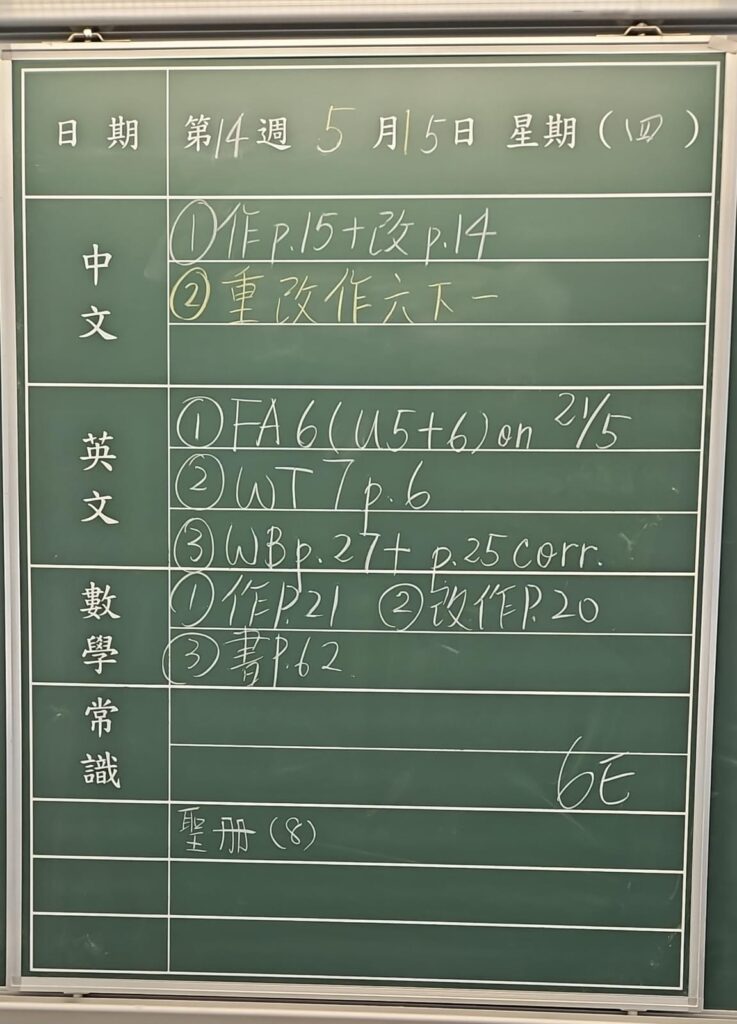 日期 第14週 5月15日 星期(四)
中文
①作p.15+改p.14
②重改作六下一
英文
①FA6(U5+6)on 21/5
②WT7p.6
③WBp.27+p.25corr.
數學
①作P.21 ②改作P.20
③書P.62
常識
6E
聖册(8)